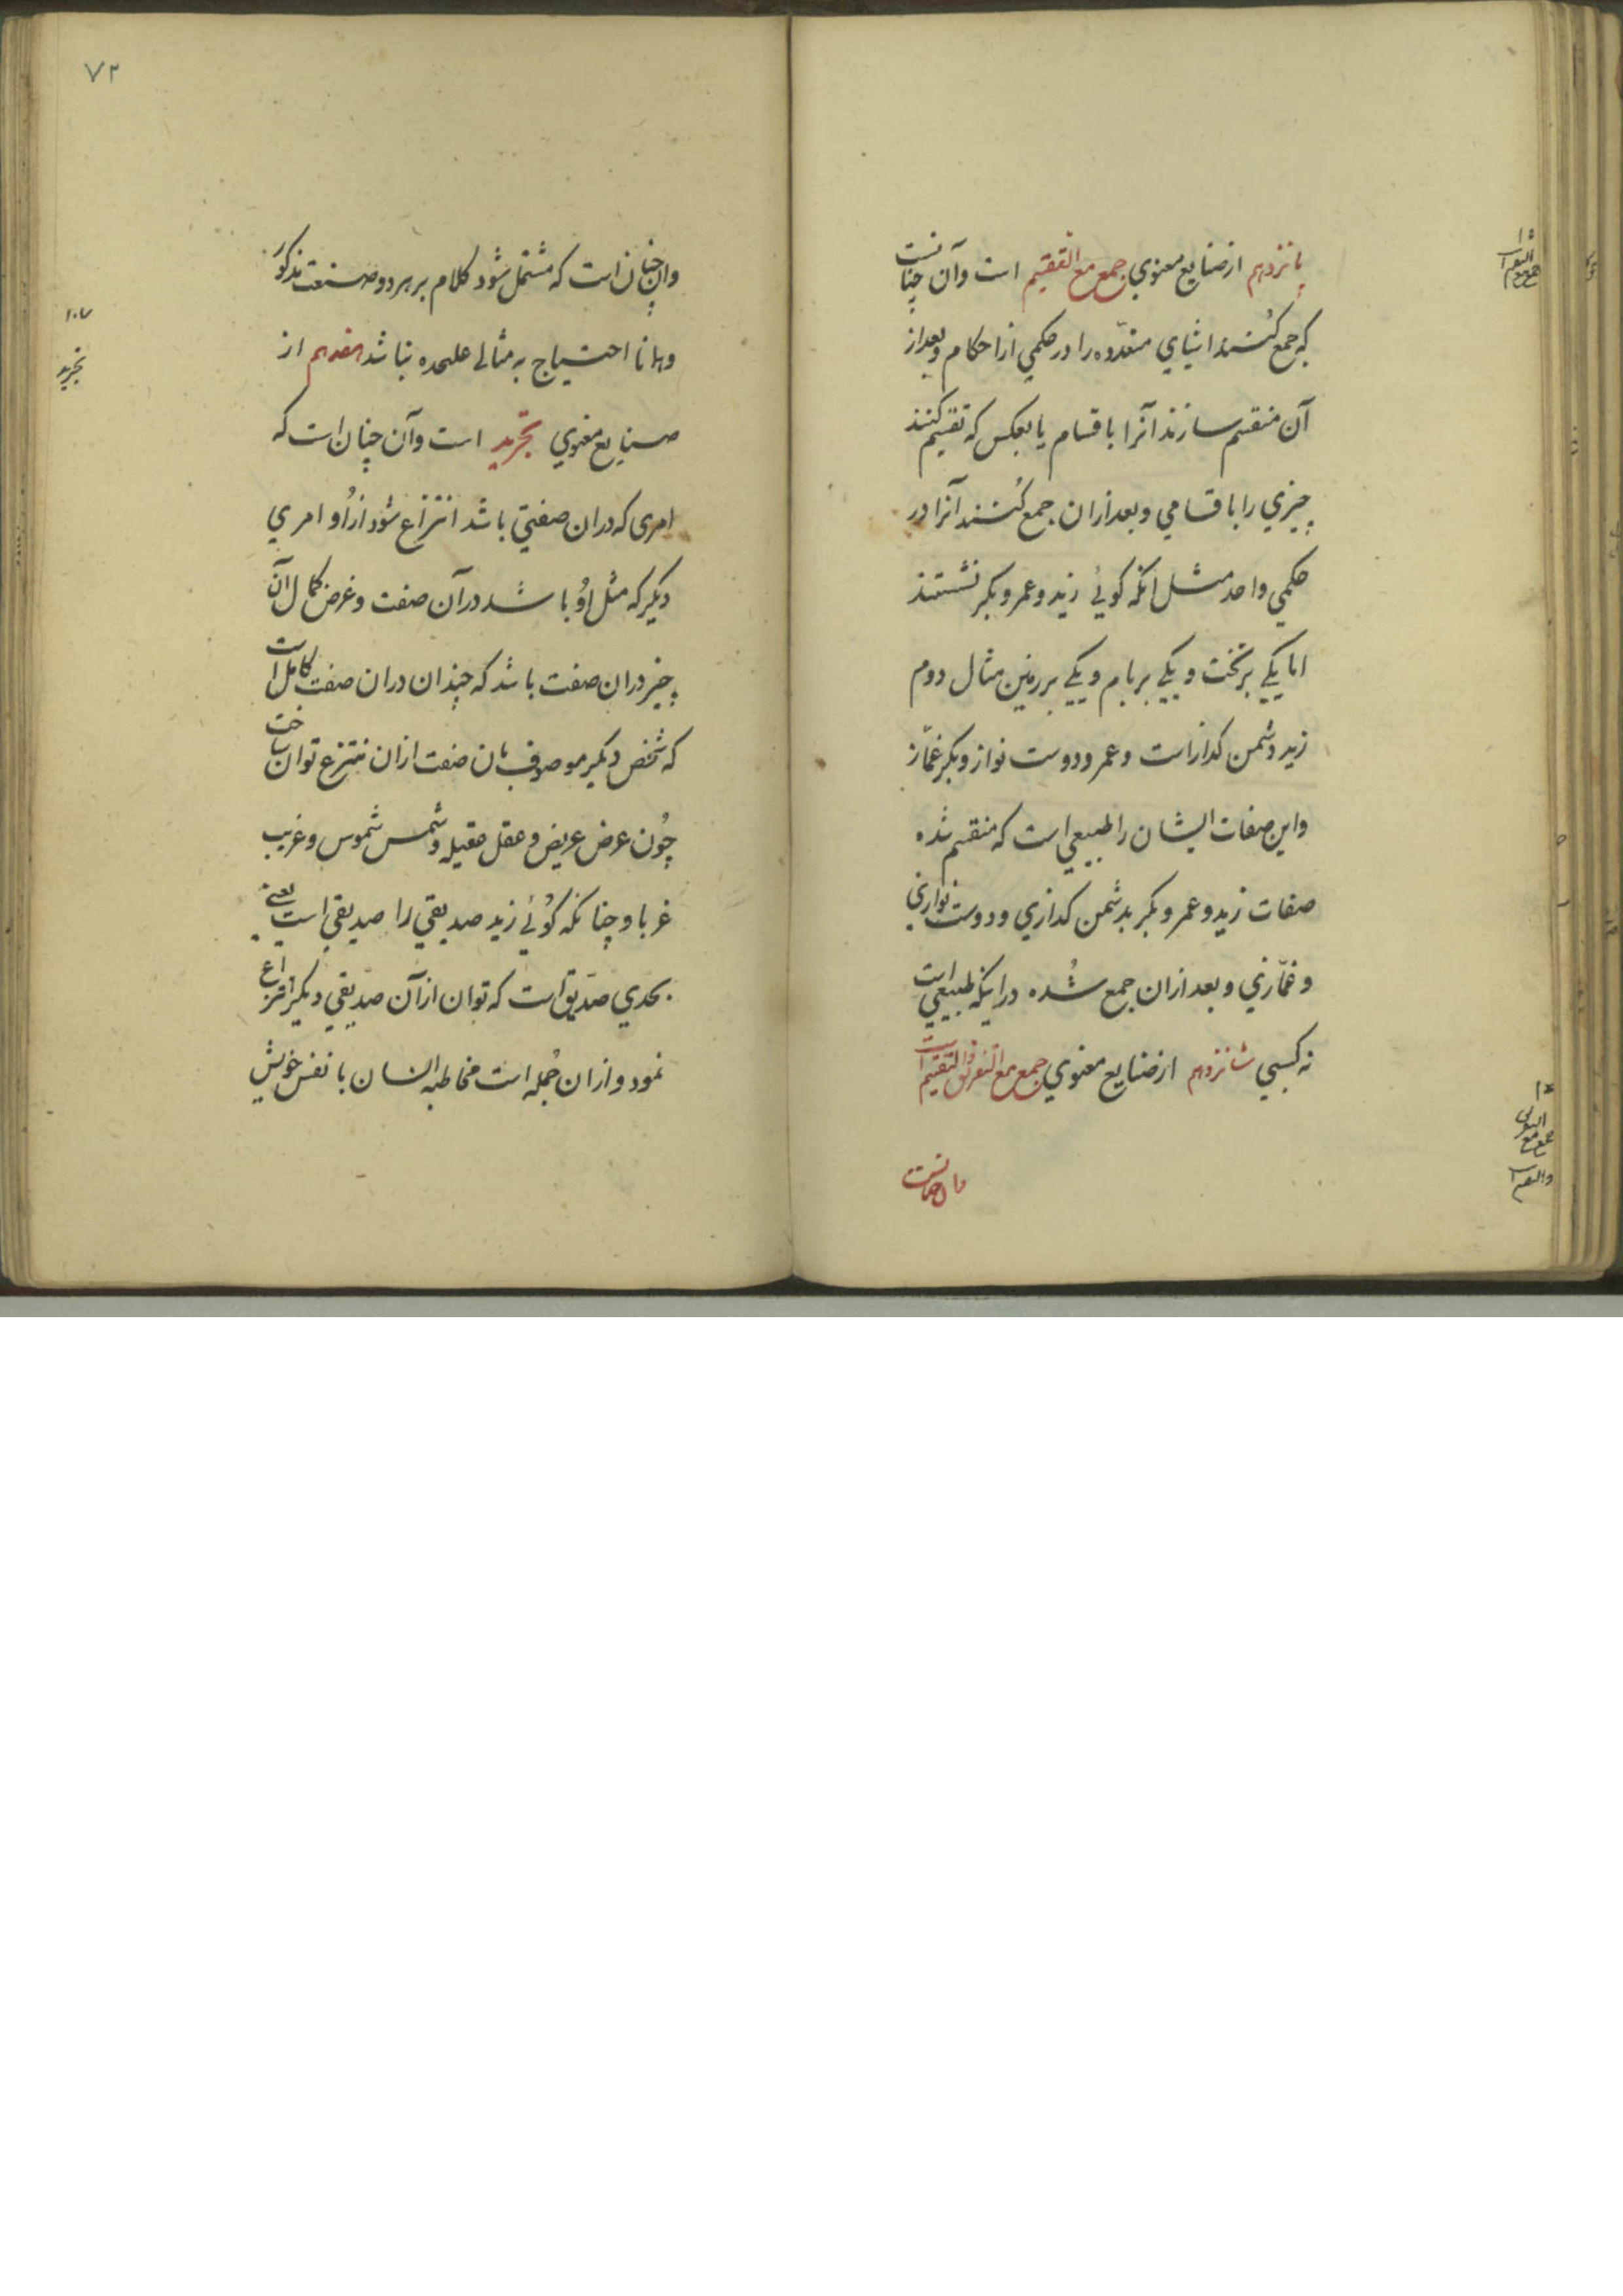 پانزدهم از صنایع معنوي جمع مع التقسیم است وآن چنانست
که جمع کنند اشیاي متعدّده را در حکمي از احکام وبعد از
آن منقسم سازند آنرا باقسام یا بعکس که تقسیم کنند
چیزي را باقسامي وبعد ازان جمع کنند آنرا در
حکمي واحد مثل انکه کوئي زید وعمرو بکر نشستند
اما یکي بر تخت ویکي بر بام ویکي بر زمین مثال دوم
زید دشمن کداز است وعمرو دوست نواز وبکر غمّاز
واین صفات ایشان را طبیعي است که منقسم شده
صفات زید وعمر وبکر بدشمن کدازي ودوست نوازي
وغمّازي وبعد ازان جمع شُده در اینکه طبیعي است
نه کسبي شانزدهم از صنایع معنوي جمع مع التفریق والتقسیم است
وان چنانست
۱۵
جمع مع التقسیم
۱۶
جمع مع التفریق
والتقسیم
۷۲
وان چنان است که مشتمل شود کلام بر هر دو صنعت مذکور
وهمانا احتیاج به مثالي علیحده نباشد هفدهم از
صنایع معنوي تجرید است وآن چنان است که
امری که دران صفتي باشد انتزاع شود ازاو امري
دیکر که مثل اوُ باشد درآن صفت وغرض کمال آن
چیز دران صفت باشد که چندان دران صفت کامل است
که شخص دیکر موصوف بان صفت ازان منتزع توان ساخت
چُون عرض عریض وعقل عقیله وشمس شموس وغریب
غربا وچنانکه کوُئي زید صدیقي را صدیقي است یعني
بحدي صدّیق است که توان ازآن صدّیقي دیکر انتزاع
نمود وازان جُمله است مخاطبه انسان با نفس خویش
۱۰۷
تجرید